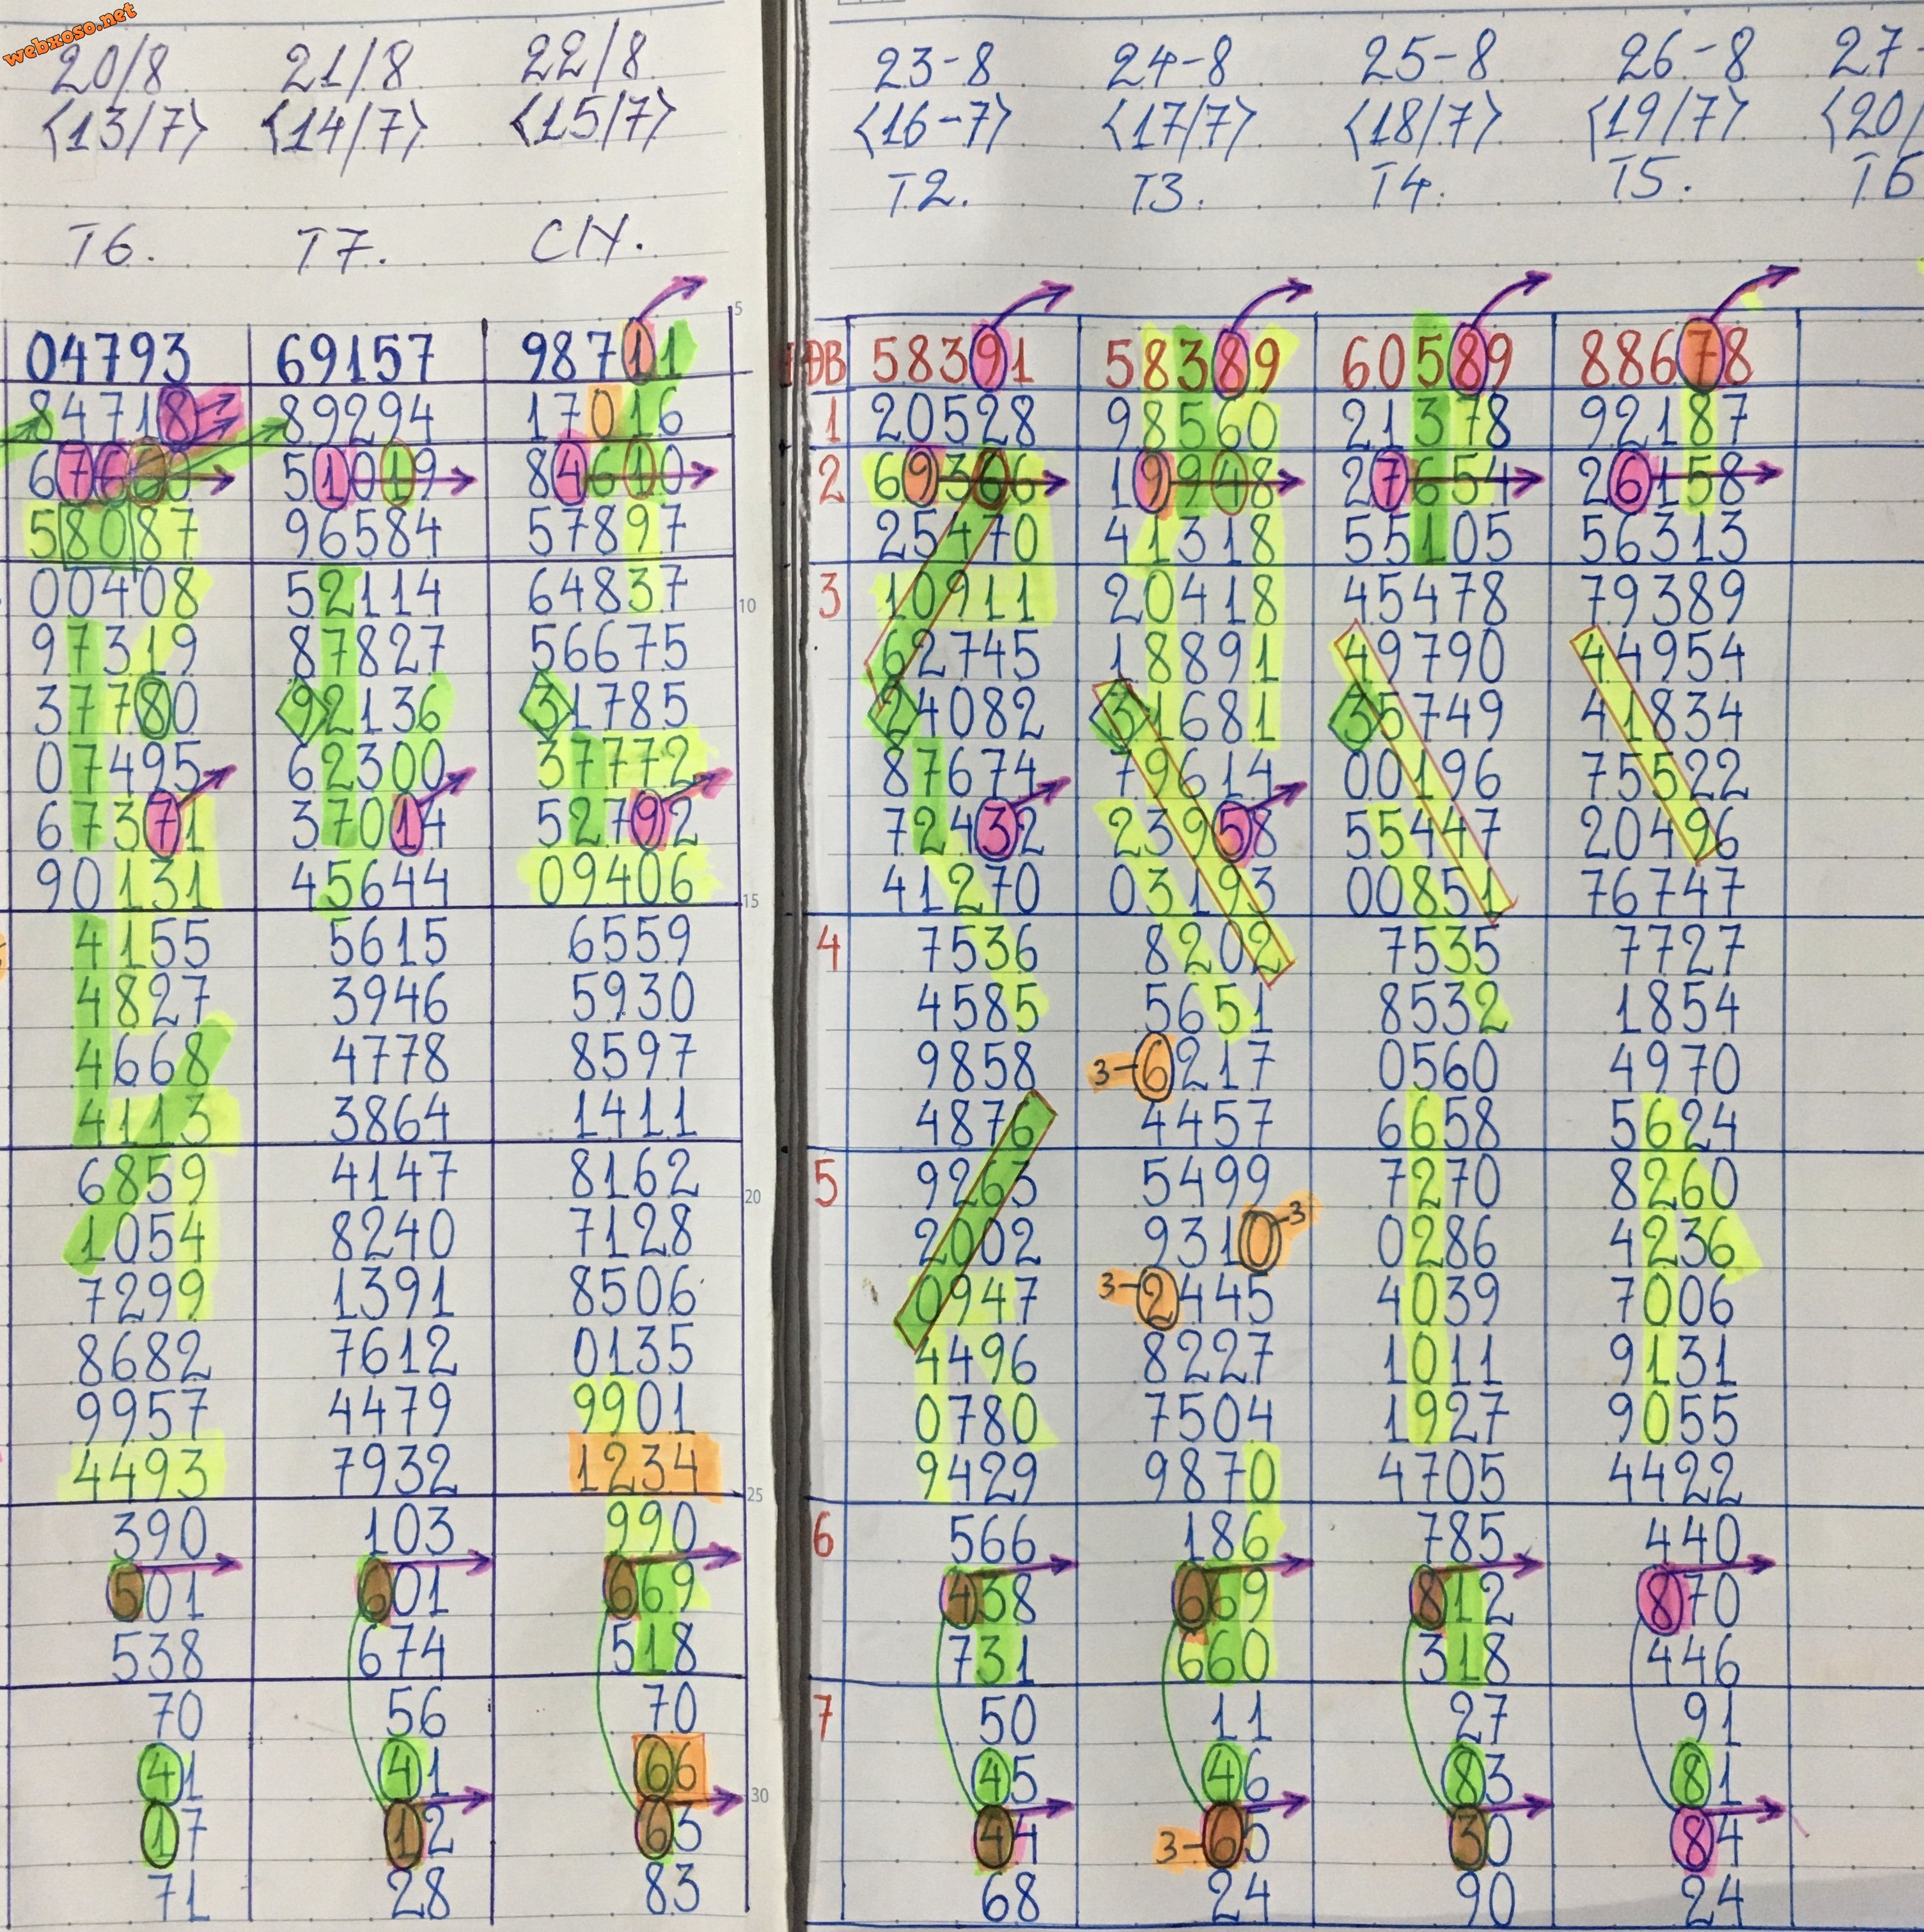 webxoso.net
20/8 21/8 22/8 23-8 24-8 25-8 26-8 27-
<13/7> <14/7> <15/7> <16-7> <17/7> <18/7> <19/7> <20/
T2. T3. T4. T5. T6
T6. T7. CN.
5
04793 69157 98711 ĐB 58391 58389 60589 88678
84718 89294 17016 1 20528 98560 21378 92187
67660 51019 84610 2 69366 19948 27654 26158
58087 96584 57897 25470 41318 55105 56313
00408 52114 64837 10 3 10911 20418 45478 79389
97319 87827 56675 62745 18891 49790 44954
37780 92136 31785 24082 31681 35749 41834
07495 62300 37772 87674 79614 00196 75522
67371 37014 52792 72432 23958 55447 20496
90131 45644 09406 15 41270 03193 00851 76747
4155 5615 6559 4 7536 8202 7535 7727
4827 3946 5930 4585 5651 8532 1854
4668 4778 8597 9858 3-6217 0560 4970
4113 3864 1411 4876 4457 6658 5624
6859 4147 8162 20 5 9263 5499 7270 8260
1054 8240 7128 2002 9310-3 0286 4236
7299 1391 8506 0947 3-2445 4039 7006
8682 7612 0135 4496 8227 1011 9131
9957 4479 9901 0780 7504 1927 9055
4493 7932 1234 25 9429 9870 4705 4422
390 103 990 6 566 186 785 440
501 601 669 438 669 812 870
538 674 518 731 660 318 446
70 56 70 7 50 11 27 91
41 41 66 30 45 46 83 81
17 12 63 44 3-65 30 84
71 28 83 68 24 90 24